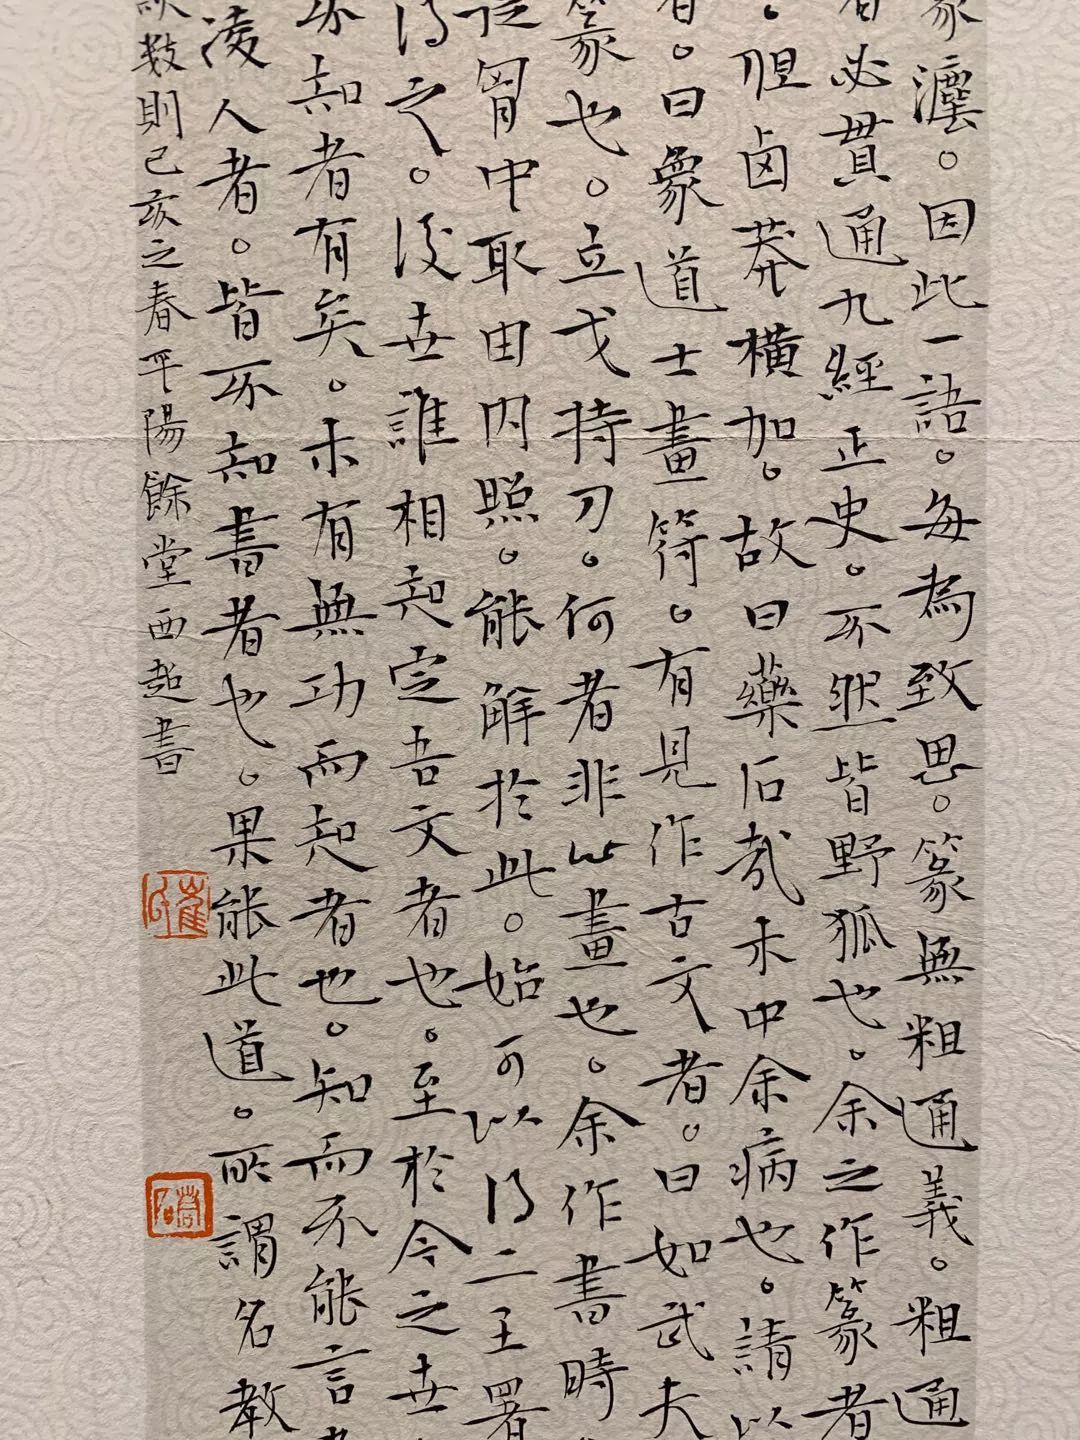 篆瀍。因此一語。每為致思。篆無粗通義。粗通
者必貫通九經正史。不然皆野狐也。余之作篆者
。但鹵莽橫加。故曰藥石哉未中余病也。請以
者。曰象道士畫符。有見作古文者。曰如武夫
篆也。立戈持刀。何者非以畫也。余作書時
從胷中取由内照。能解於此。始可以得二王署
得之。後世誰相知定吾文者也。至於今之世
不知者有矣。未有無功而知者也。知而不能言者
凌人者。皆不知書者也。果能此道。所謂名教
數則己亥之春平陽餘堂西超書
崔